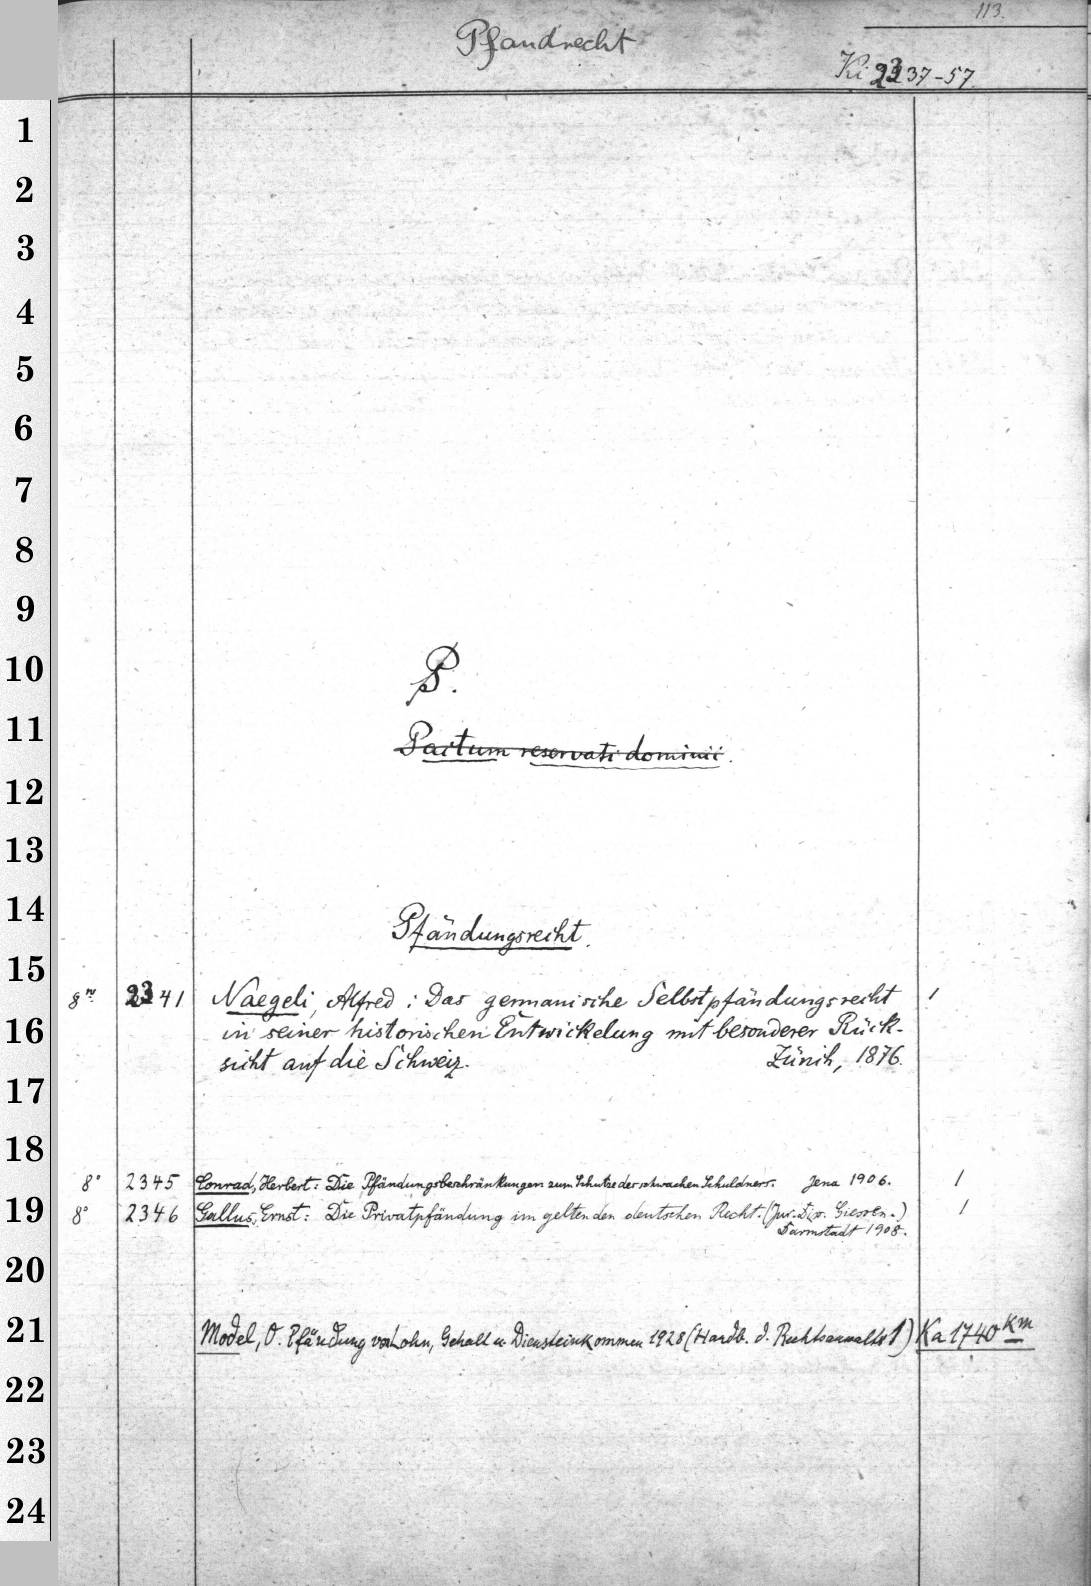 113.
Pfandrecht
Ki 2337-57.
1
2
3
4
5
6
7
8
9
10
P.
11
Pactum reservati dominii.
12
13
14
Pfändungsrecht.
15
8vo 2341 Naegeli, Alfred: Das germanische Selbstpfändungsrecht 1
16 in seiner historischen Entwickelung mit besonderer Rück-
sicht auf die Schweiz. Zürich, 1876.
17
18
8° 2345 Conrad, Herbert: Die Pfändungsbeschränkungen zum Schutze des schwachen Schuldners. Jena 1906. 1
19 8° 2346 Gallus, Ernst: Die Privatpfändung im geltenden deutschen Recht. (Jur. Diss. Giessen.) 1
Darmstadt 1908.
20
21 Model, O. Pfändung von Lohn, Gehalt u. Diensteinkommen 1928 (Handb. d. Rechtsanwalts 1) Ka 1740 km
22
23
24